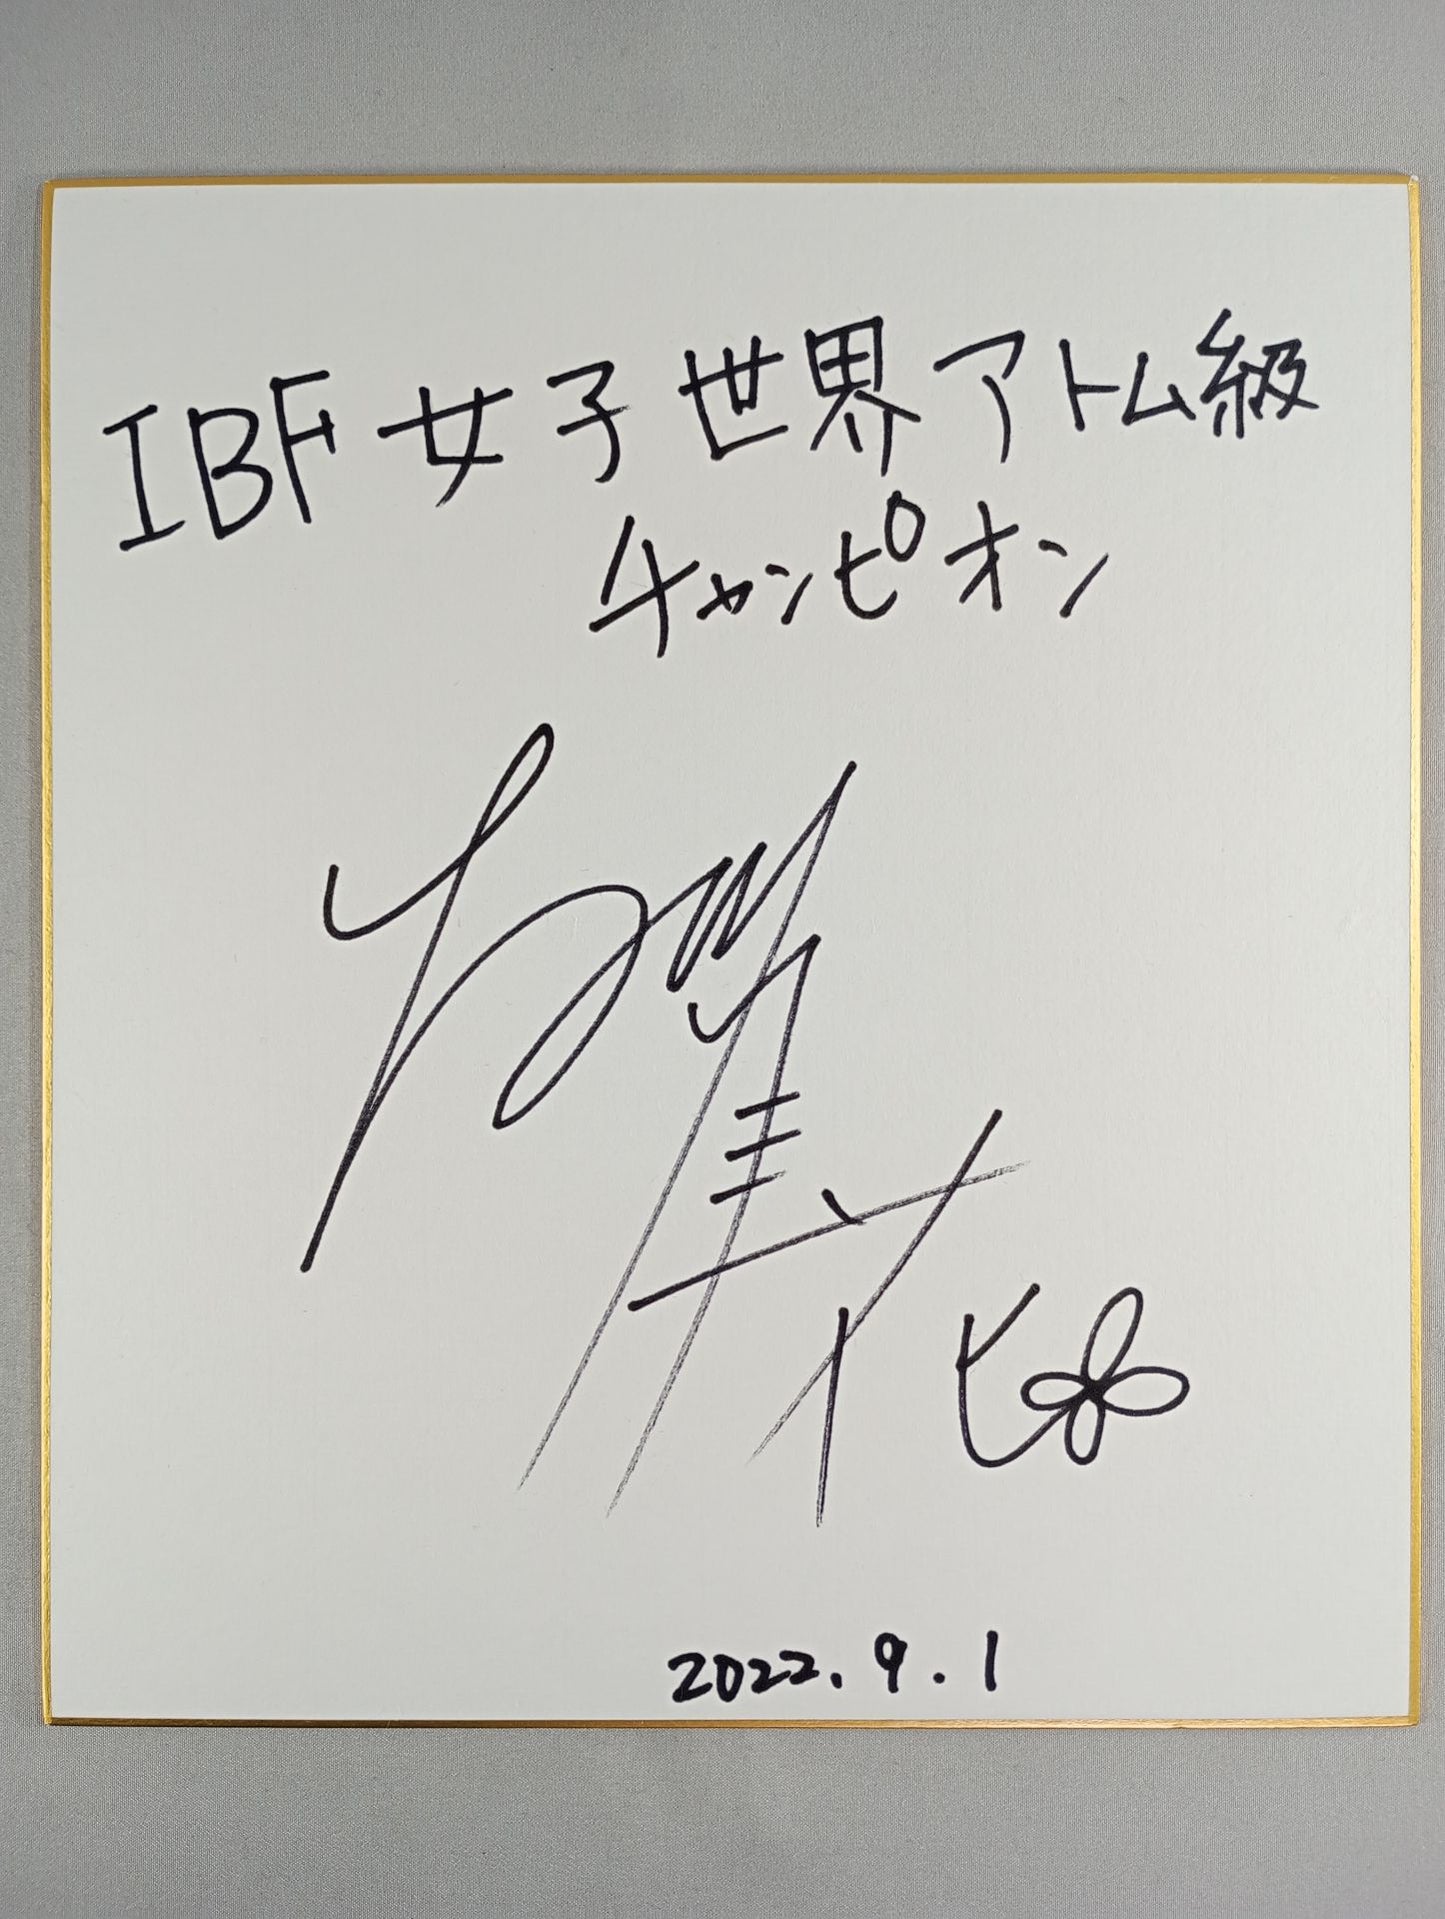 IBF女子世界アトム級
チャンピオン
2022.9.1